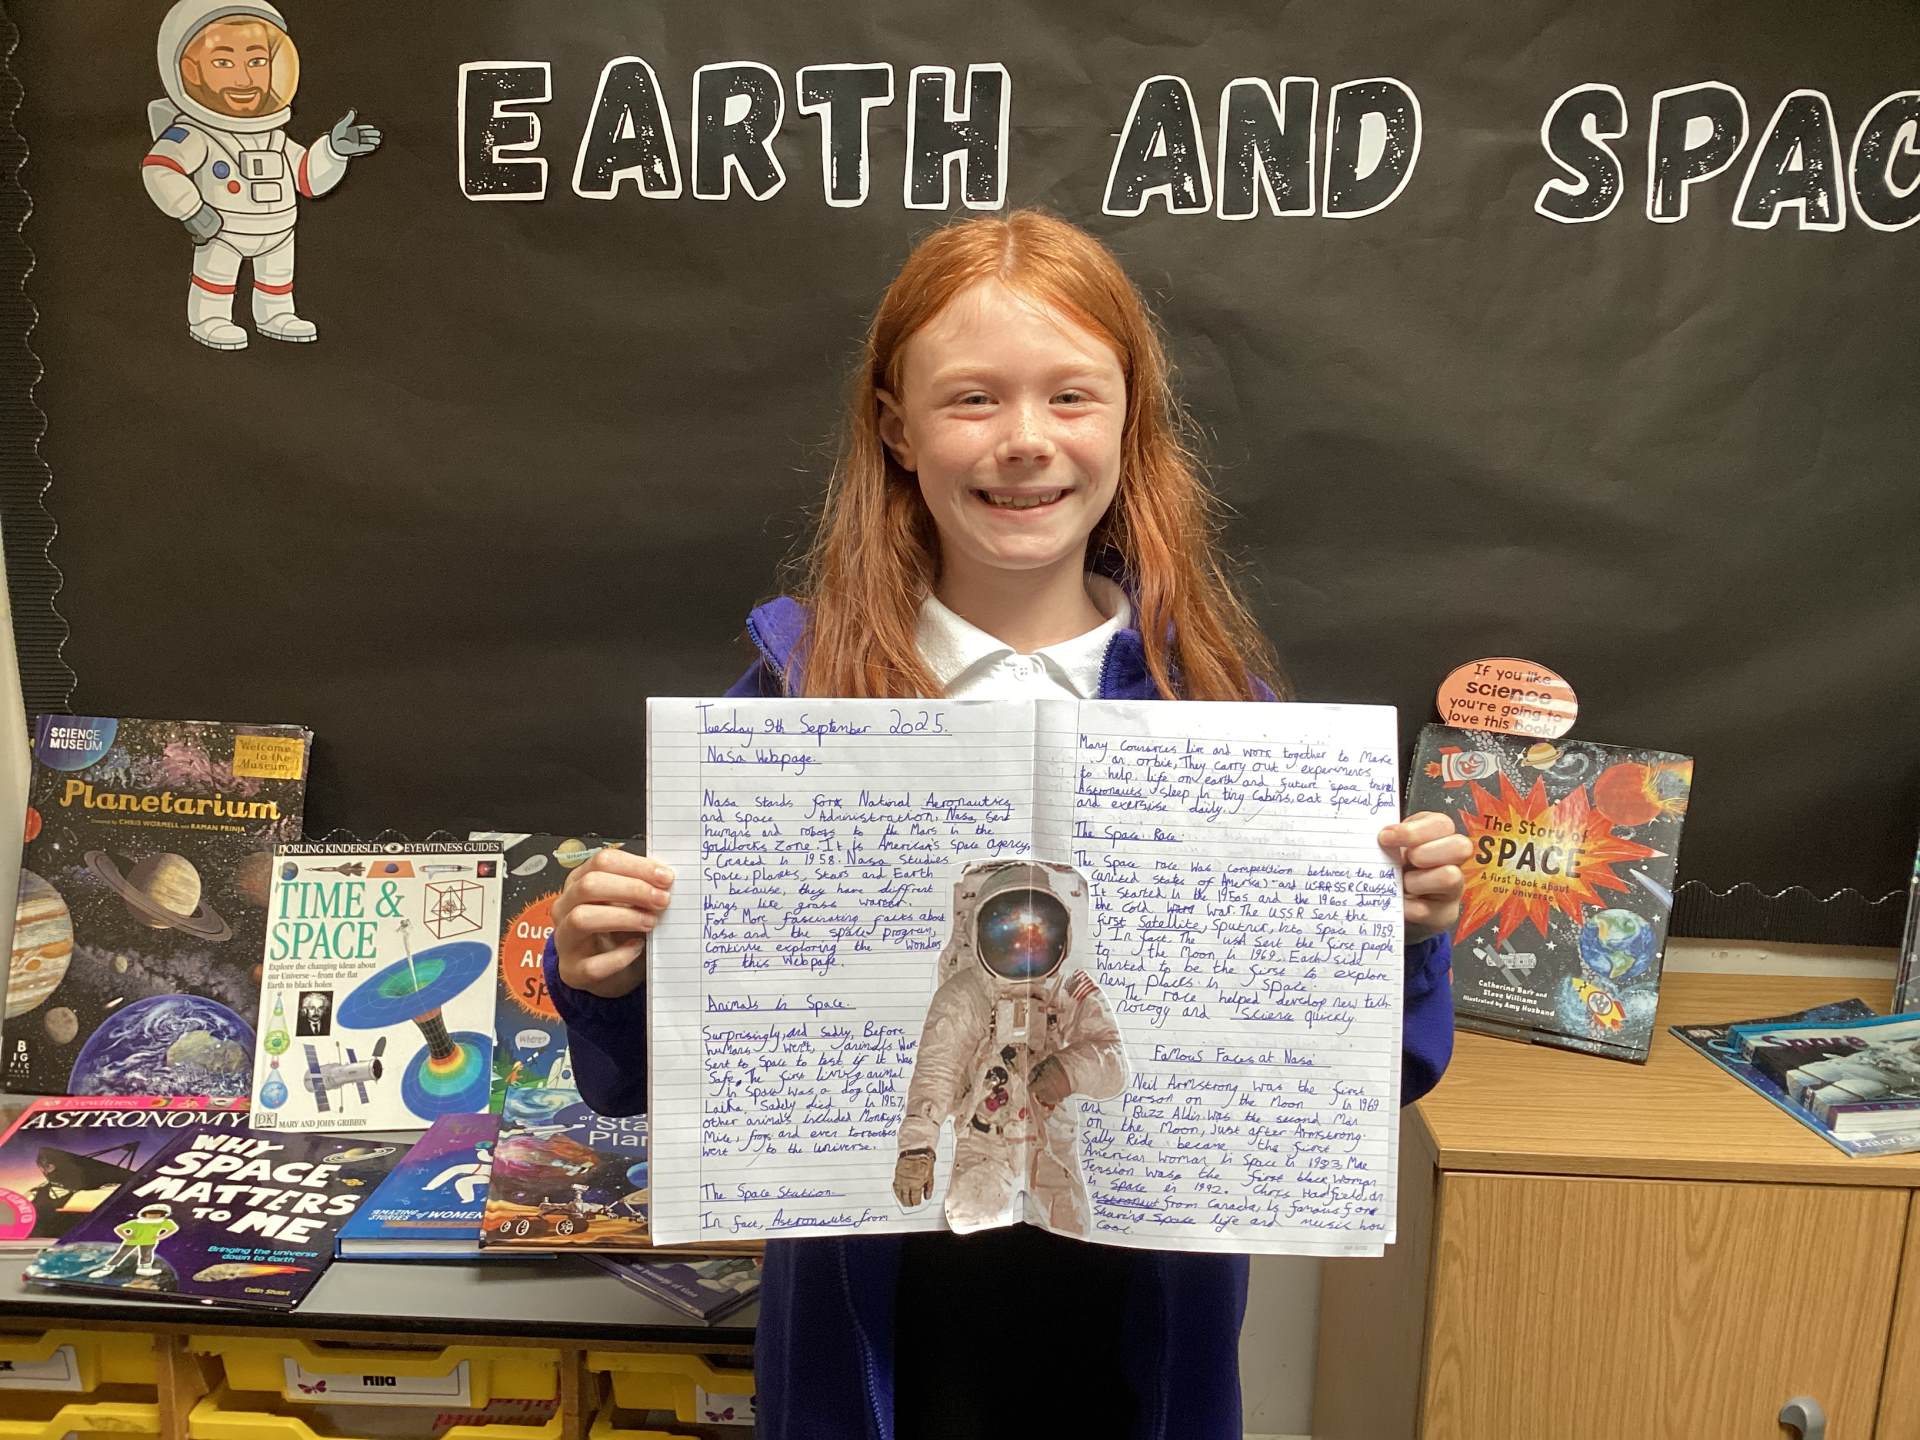 EARTH AND SPAC
Tuesday 9th September 2025.
NaSa Webpage.
Nasa stands for National Aeronautics
and Space Administration. Nasa, sent
humans and robots to the Mars in the
goldilocks zone. It is American's space agency,
Created in 1958. Nasa Studies
Space, planets, stars and Earth
because, they have diffrent
things like grass water.
For More fascinating facts about
Nasa and the space program,
Continue exploring the wonders
of this Webpage.
Animals in Space.
Surprisingly, and Sadly, Before
humans went, animals were
Sent to Space to test if it was
Safe. The first living animal
in Space was a dog called
Laika. Sadly died in 1957
other animals included Monkeys,
Mice, frogs and even tortoises
went to the universe.
The Space Station.
In fact, Astronauts from
Many Counries live and work together to Make
an orbit, They carry out experiments
to help life on earth and future space travel
Astronauts sleep in tiny Cabins, eat special food
and exersise daily.
The Space Race.
The Space race was Competition between the USA
(united states of Amerka) and USSR (Russia)
It started in the 1950s and the 1960s during
the Cold War. The USSR Sent the
first Satellite, Sputnik, into Space in 1959.
In fact. The USA sent the first people
to the Moon in 1969. Each side
wanted to be the first to explore
new places in space.
The race helped develop new tech-
nology and Science quickly.
Famous Faces at Nasa
Neil Armstrong was the first
person on the Moon in 1969
and Buzz Aldin was the second Man
on the Moon, Just after Armstrong.
Sally Ride became the first
American woman in Space in 1983. Mae
Jension was the first black woman
in space in 1992. Chris Hadfield, an
astronaut from Canada, is famous for
Sharing Space life and music how
Cool.
SCIENCE
MUSEUM
Welcome
to the
Museum
Planetarium
Created by CHRIS WORMELL and RAMAN PRINJA
BIG
PIC
DORLING KINDERSLEY EYEWITNESS GUIDES
TIME &
SPACE
Explore the changing ideas about
our Universe – from the flat
Earth to black holes
DK
MARY AND JOHN GRIBBIN
Que
Where?
Sta
Plan
Eyewitness
ASTRONOMY
WHY
SPACE
MATTERS
TO ME
Bringing the universe
down to Earth
Colin Stuart
AMAZING
STORIES OF WOMEN
If you like
science
you're going to
love this book!
The Story of
SPACE
A first book about
our universe
Catherine Barr and
Steve Williams
Illustrated by Amy Husband
Space